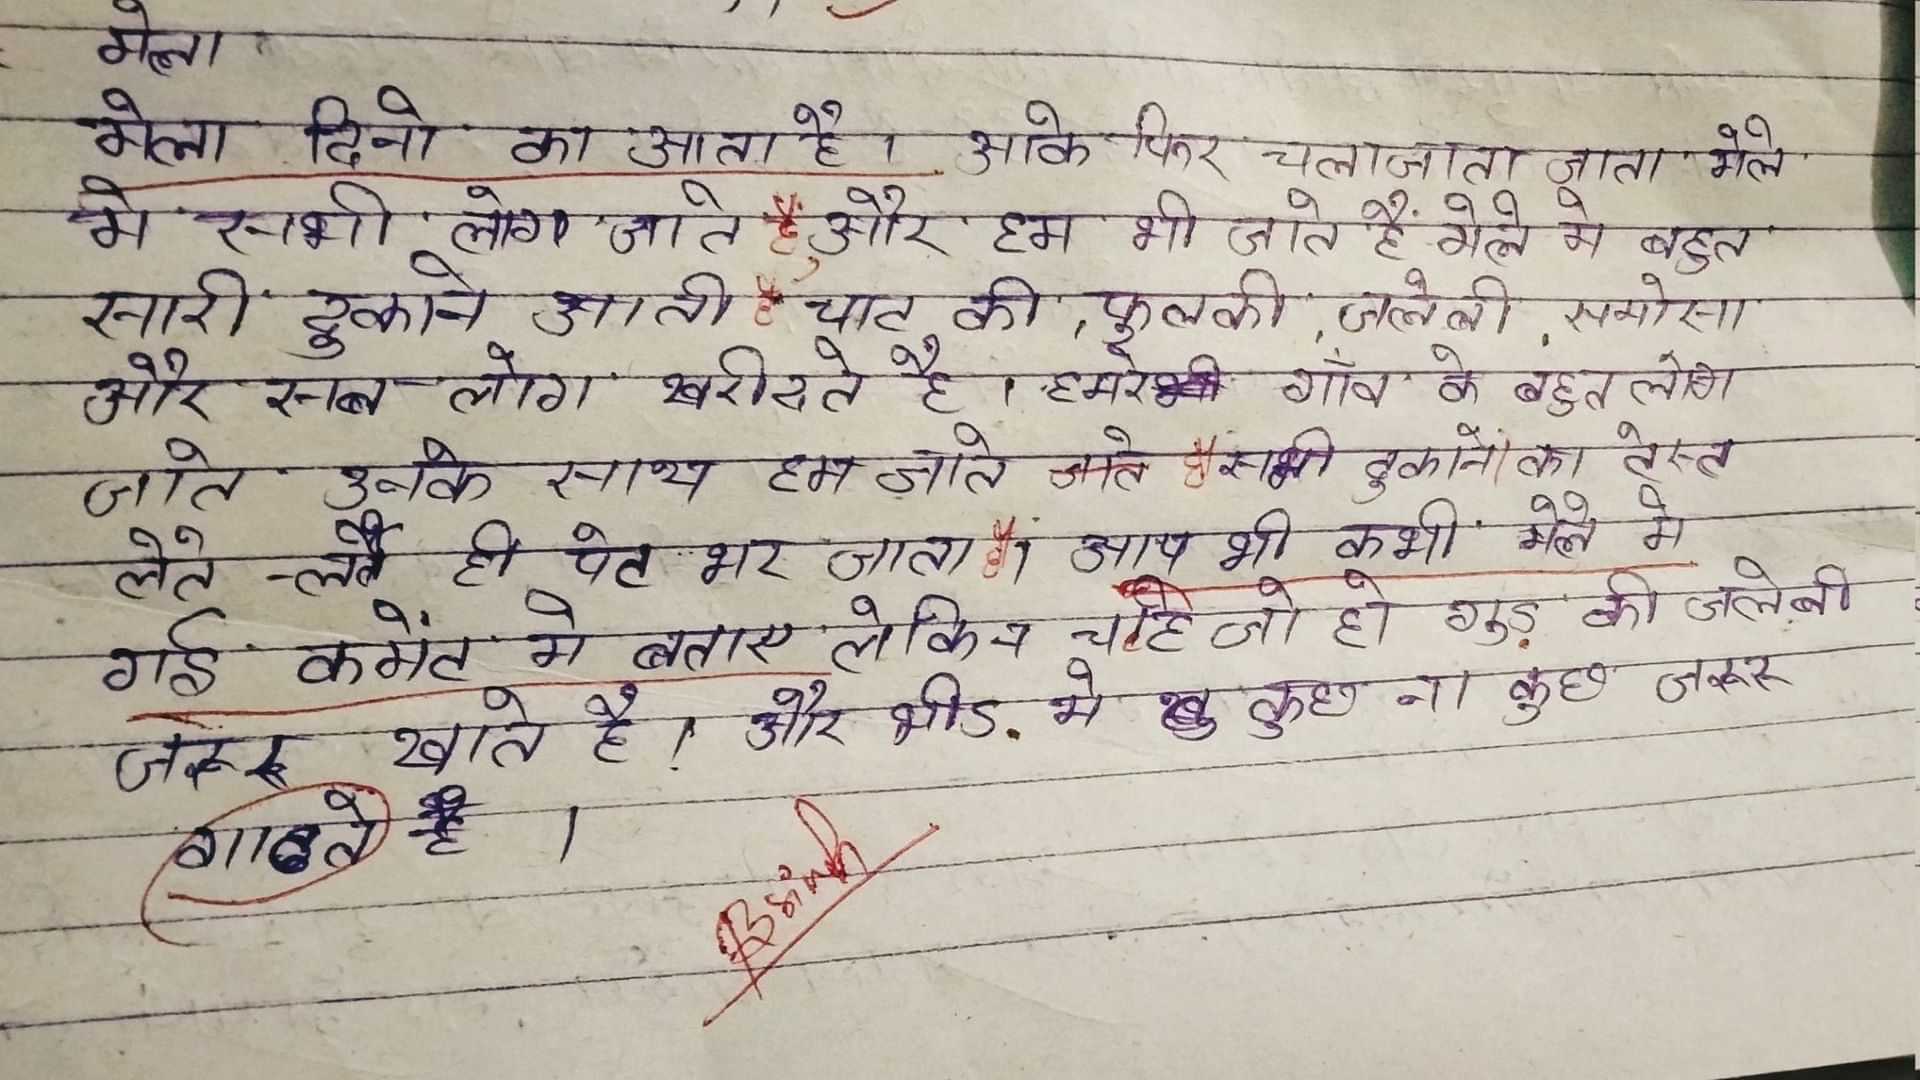 मेला
मेला दिनो का आता है। आके फिर चलाजाता जाता मेले
मे सभी लोग जाते हैं, और हम भी जाते हैं मेले मे बहुत
सारी दुकाने आती हैं चाट की, फुलकी, जलेबी, समोसा
और सब लोग खरीदते है। हमरे गाँव के बहुत लोग
जाते उनके साथ हम जाते जाते हैं सभी दुकानों का टेस्ट
लेते -लेते ही पेट भर जाता है। आप भी कभी मेले मे
गई कमेंट मे बताए लेकिन चाहे जो हो गुड़ की जलेबी
जरूर खाते है। और भीड़ मे कुछ ना कुछ जरूर
है।
BSingh